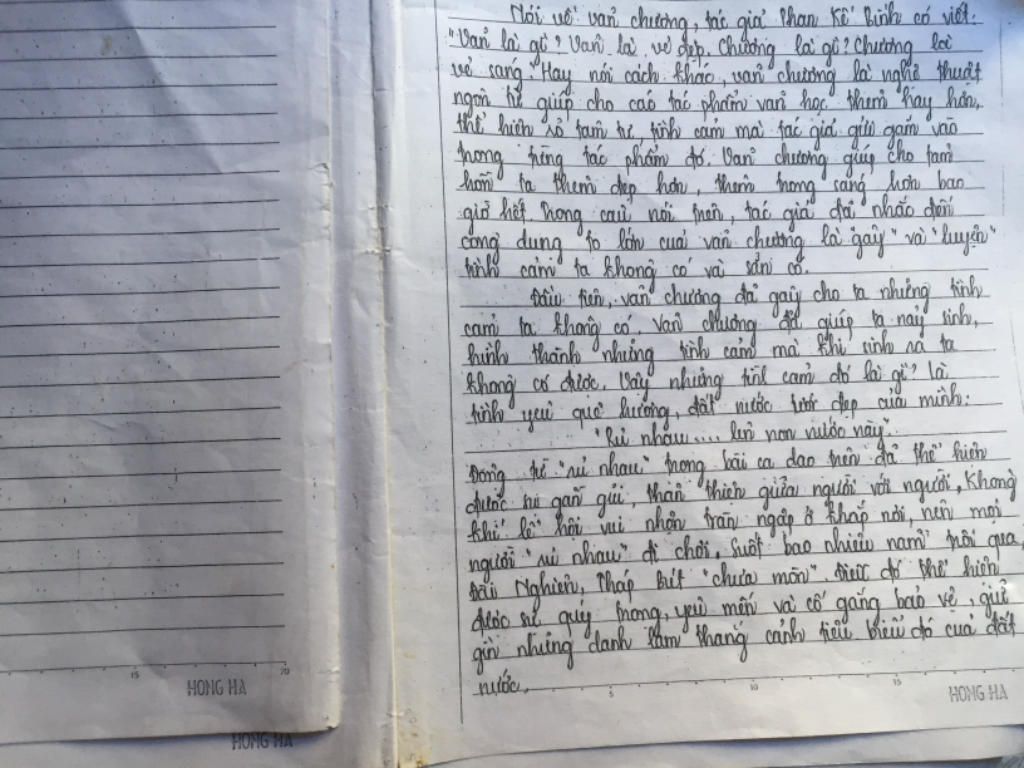 Nói về văn chương, tác giả Phan Kế Bính có viết:
"Văn là gì? Văn là vẻ đẹp. Chương là gì? Chương là
vẻ sáng". Hay nói cách khác, văn chương là nghệ thuật
ngôn từ giúp cho các tác phẩm văn học thêm hay hơn,
thể hiện rõ tâm tư, tình cảm mà tác giả gửi gắm vào
trong từng tác phẩm đó. Văn chương giúp cho tâm
hồn ta thêm đẹp hơn, thêm trong sáng hơn bao
giờ hết. Trong câu nói trên, tác giả đã nhắc đến
công dụng to lớn của văn chương là "gây" và "luyện"
tình cảm ta không có và sẵn có.
Đầu tiên, văn chương đã gây cho ta những tình
cảm ta không có. Văn chương đã giúp ta nảy sinh,
hình thành những tình cảm mà khi sinh ra ta
không có được. Vậy những tình cảm đó là gì? Là
tình yêu quê hương, đất nước tươi đẹp của mình:
"Rủ nhau.... lên non nước này".
Động từ "rủ nhau" trong bài ca dao trên đã thể hiện
được sự gần gũi, thân thiện giữa người với người. Không
khí lễ hội vui nhộn tràn ngập ở khắp nơi, nên mọi
người "rủ nhau" đi chơi. Suốt bao nhiêu năm trôi qua,
Đài Nghiên, Tháp Bút "chưa mòn". Điều đó thể hiện
được sự quý trọng, yêu mến và cố gắng bảo vệ, giữ
gìn những danh lam thắng cảnh tiêu biểu đó của đất
nước.
5 10 15
HONG HA
15 20
HONG HA
HONG HA